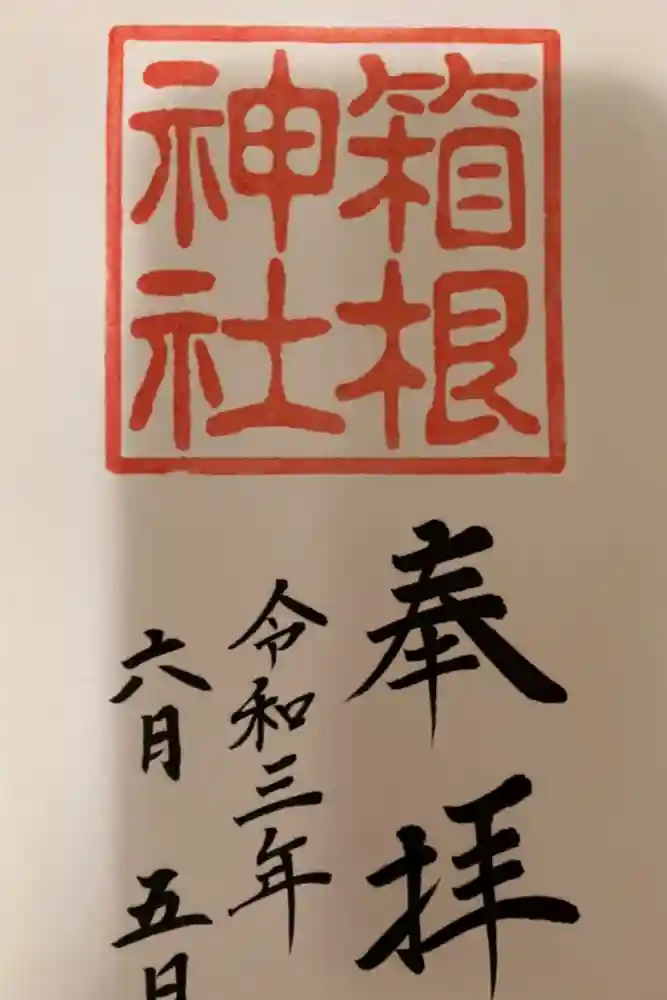 箱根
神社
奉拝
令和三年
六月五日